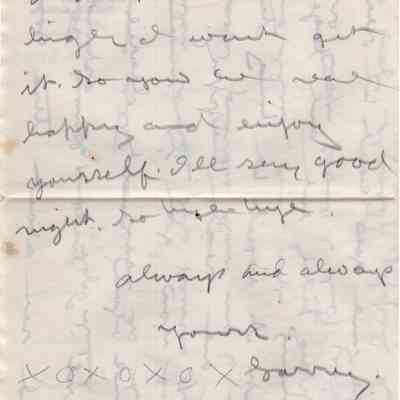 longer I won't get
it. So now be real
happy and enjoy
yourself. I'll say good
night. So
always and always
yours.
XOXOXOX